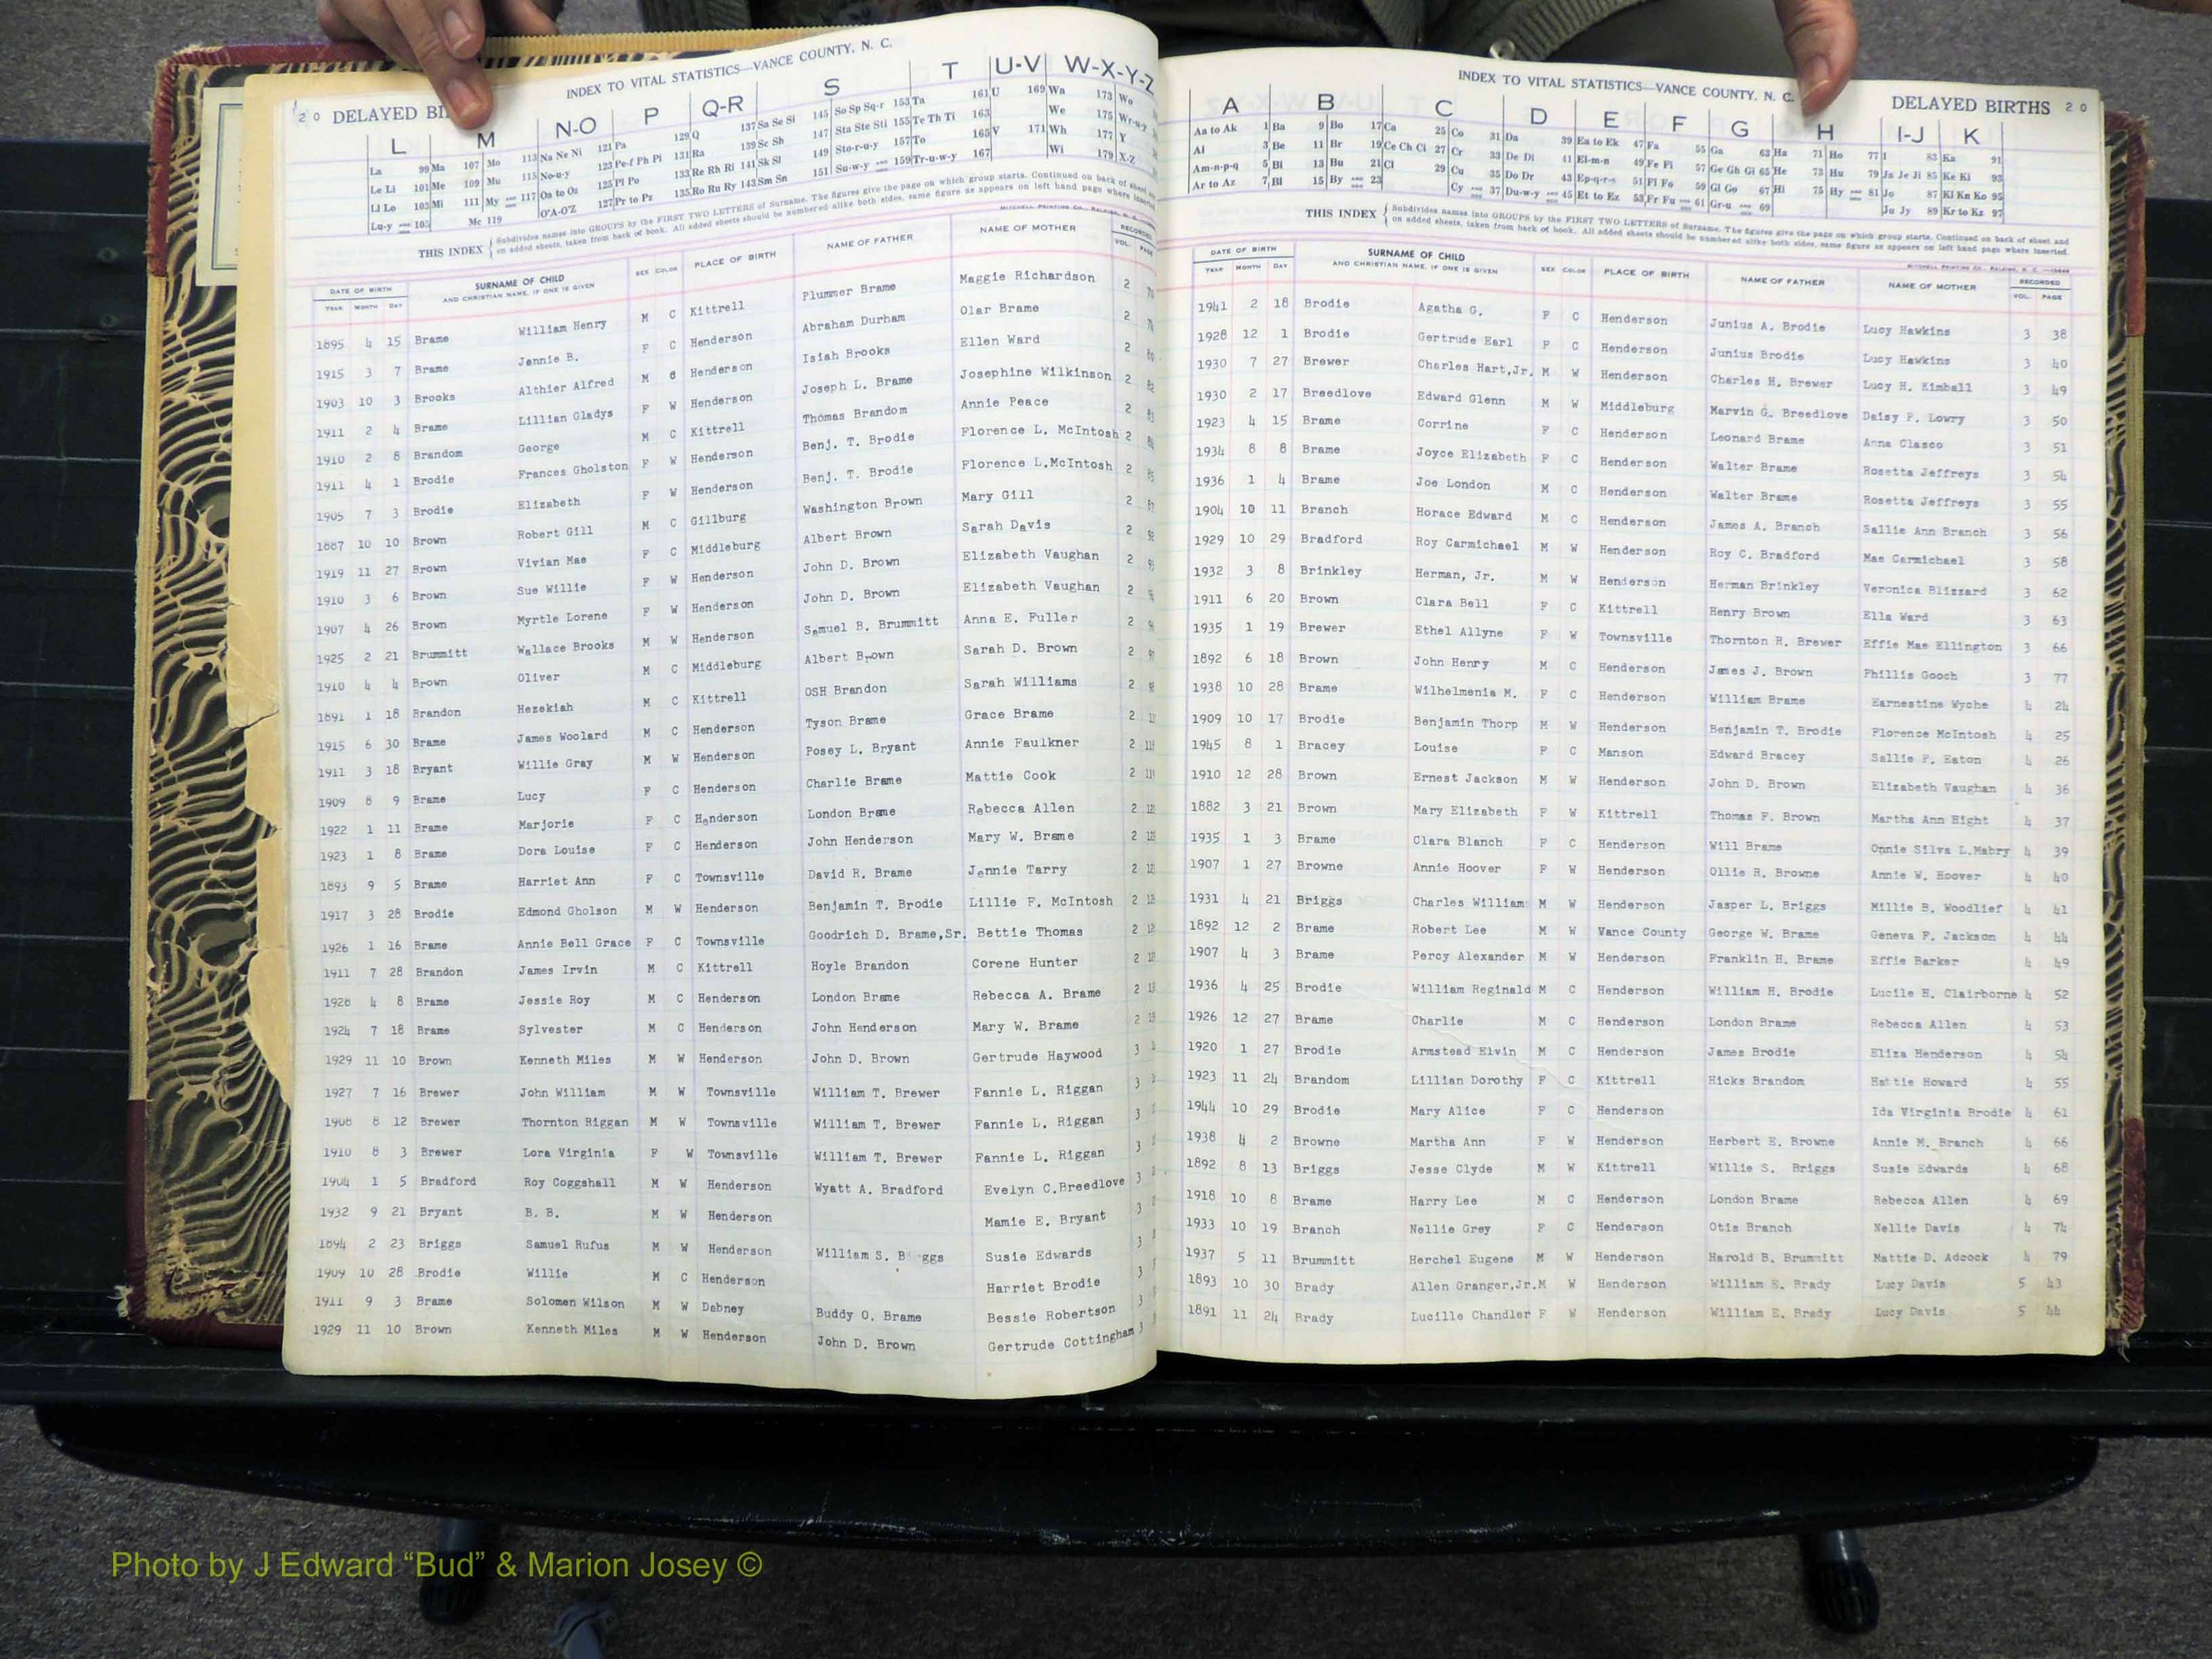 INDEX TO VITAL STATISTICS—VANCE COUNTY, N. C.
20 DELAYED BI
L M N-O P Q-R S T U-V W-X-Y-Z
La 99 Ma 107 Mo 113 Na Ne Ni 121 Pa 129 Q 137 Sa Se Si 145 So Sp Sq-r 153 Ta 161 U 169 Wa 173 Wo
Le Li 101 Me 109 Mu 115 No-u-y 123 Pe-f Ph Pi 131 Ra 139 Sc Sh 147 Sta Ste Sti 155 Te Th Ti 163 We 175 Wr-u-y
Ll Lo 103 Mi 111 My AND 117 Oa to Oz 125 Pl Po 133 Re Rh Ri 141 Sk Sl 149 Sto-r-u-y 157 To 165 V 171 Wh 177 Y
Lu-y AND 105 Mc 119 O'A-O'Z 127 Pr to Pz 135 Ro Ru Ry 143 Sm Sn 151 Su-w-y AND 159 Tr-u-w-y 167 Wi 179 X-Z
THIS INDEX { Subdivides names into GROUPS by the FIRST TWO LETTERS of Surname. The figures give the page on which group starts. Continued on back of sheet and
on added sheets, taken from back of book. All added sheets should be numbered alike both sides, same figure as appears on left hand page where inserted.
MITCHELL PRINTING CO., RALEIGH, N. C.
DATE OF BIRTH SURNAME OF CHILD SEX COLOR PLACE OF BIRTH NAME OF FATHER NAME OF MOTHER RECORDED
YEAR MONTH DAY AND CHRISTIAN NAME, IF ONE IS GIVEN VOL. PAGE
1895 4 15 Brame William Henry M C Kittrell Plummer Brame Maggie Richardson 2
1915 3 7 Brame Jennie B. F C Henderson Abraham Durham Olar Brame 2
1903 10 3 Brooks Althier Alfred M Henderson Isiah Brooks Ellen Ward 2
1911 2 4 Brame Lillian Gladys F W Henderson Joseph L. Brame Josephine Wilkinson 2
1910 2 8 Brandom George M C Kittrell Thomas Brandom Annie Peace 2
1911 4 1 Brodie Frances Gholston F W Henderson Benj. T. Brodie Florence L. McIntosh 2
1905 7 3 Brodie Elizabeth F W Henderson Benj. T. Brodie Florence L.McIntosh 2
1887 10 10 Brown Robert Gill M C Gillburg Washington Brown Mary Gill 2
1919 11 27 Brown Vivian Mae F C Middleburg Albert Brown Sarah Davis 2
1910 3 6 Brown Sue Willie F W Henderson John D. Brown Elizabeth Vaughan 2
1907 4 26 Brown Myrtle Lorene F W Henderson John D. Brown Elizabeth Vaughan 2
1925 2 21 Brummitt Wallace Brooks M W Henderson Samuel B. Brummitt Anna E. Fuller 2
1910 4 4 Brown Oliver M C Middleburg Albert Brown Sarah D. Brown 2
1891 1 18 Brandon Hezekiah M C Kittrell OSH Brandon Sarah Williams 2
1915 6 30 Brame James Woolard M C Henderson Tyson Brame Grace Brame 2
1911 3 18 Bryant Willie Gray M W Henderson Posey L. Bryant Annie Faulkner 2
1909 8 9 Brame Lucy F C Henderson Charlie Brame Mattie Cook 2
1922 1 11 Brame Marjorie F C Henderson London Brame Rebecca Allen 2
1923 1 8 Brame Dora Louise F C Henderson John Henderson Mary W. Brame 2
1893 9 5 Brame Harriet Ann F C Townsville David R. Brame Jennie Tarry 2
1917 3 28 Brodie Edmond Gholson M W Henderson Benjamin T. Brodie Lillie F. McIntosh 2
1926 1 16 Brame Annie Bell Grace F C Townsville Goodrich D. Brame,Sr. Bettie Thomas 2
1911 7 28 Brandon James Irvin M C Kittrell Hoyle Brandon Corene Hunter 2
1928 4 8 Brame Jessie Roy M C Henderson London Brame Rebecca A. Brame 2
1924 7 18 Brame Sylvester M C Henderson John Henderson Mary W. Brame 2
1929 11 10 Brown Kenneth Miles M W Henderson John D. Brown Gertrude Haywood 3
1927 7 16 Brewer John William M W Townsville William T. Brewer Fannie L. Riggan 3
1908 8 12 Brewer Thornton Riggan M W Townsville William T. Brewer Fannie L. Riggan 3
1910 8 3 Brewer Lora Virginia F W Townsville William T. Brewer Fannie L. Riggan 3
1904 1 5 Bradford Roy Coggshall M W Henderson Wyatt A. Bradford Evelyn C.Breedlove 3
1932 9 21 Bryant B. B. M W Henderson Mamie E. Bryant 3
1894 2 23 Briggs Samuel Rufus M W Henderson William S. B ggs Susie Edwards 3
1909 10 28 Brodie Willie M C Henderson Harriet Brodie 3
1911 9 3 Brame Solomen Wilson M W Dabney Buddy O. Brame Bessie Robertson 3
1929 11 10 Brown Kenneth Miles M W Henderson John D. Brown Gertrude Cottingham 3
INDEX TO VITAL STATISTICS—VANCE COUNTY, N. C.
DELAYED BIRTHS 20
A B C D E F G H I-J K
Aa to Ak 1 Ba 9 Bo 17 Ca 25 Co 31 Da 39 Ea to Ek 47 Fa 55 Ga 63 Ha 71 Ho 77 I 83 Ka 91
Al 3 Be 11 Br 19 Ce Ch Ci 27 Cr 33 De Di 41 El-m-n 49 Fe Fi 57 Ge Gh Gi 65 He 73 Hu 79 Ja Je Ji 85 Ke Ki 93
Am-n-p-q 5 Bi 13 Bu 21 Cl 29 Cu 35 Do Dr 43 Ep-q-r-s 51 Fl Fo 59 Gl Go 67 Hi 75 Hy AND 81 Jo 87 Kl Kn Ko 95
Ar to Az 7 Bl 15 By AND 23 Cy AND 37 Du-w-y AND 45 Et to Ez 53 Fr Fu AND 61 Gr-u AND 69 Ju Jy 89 Kr to Kz 97
THIS INDEX { Subdivides names into GROUPS by the FIRST TWO LETTERS of Surname. The figures give the page on which group starts. Continued on back of sheet and
on added sheets, taken from back of book. All added sheets should be numbered alike both sides, same figure as appears on left hand page where inserted.
MITCHELL PRINTING CO., RALEIGH, N. C.
DATE OF BIRTH SURNAME OF CHILD SEX COLOR PLACE OF BIRTH NAME OF FATHER NAME OF MOTHER RECORDED
YEAR MONTH DAY AND CHRISTIAN NAME, IF ONE IS GIVEN VOL. PAGE
1941 2 18 Brodie Agatha G. F C Henderson Junius A. Brodie Lucy Hawkins 3 38
1928 12 1 Brodie Gertrude Earl F C Henderson Junius Brodie Lucy Hawkins 3 40
1930 7 27 Brewer Charles Hart,Jr. M W Henderson Charles H. Brewer Lucy H. Kimball 3 49
1930 2 17 Breedlove Edward Glenn M W Middleburg Marvin G. Breedlove Daisy P. Lowry 3 50
1923 4 15 Brame Corrine F C Henderson Leonard Brame Anna Clasco 3 51
1934 8 8 Brame Joyce Elizabeth F C Henderson Walter Brame Rosetta Jeffreys 3 54
1936 1 4 Brame Joe London M C Henderson Walter Brame Rosetta Jeffreys 3 55
1904 10 11 Branch Horace Edward M C Henderson James A. Branch Sallie Ann Branch 3 56
1929 10 29 Bradford Roy Carmichael M W Henderson Roy C. Bradford Mae Carmichael 3 58
1932 3 8 Brinkley Herman, Jr. M W Henderson Herman Brinkley Veronica Blizzard 3 62
1911 6 20 Brown Clara Bell F C Kittrell Henry Brown Ella Ward 3 63
1935 1 19 Brewer Ethel Allyne F W Townsville Thornton R. Brewer Effie Mae Ellington 3 66
1892 6 18 Brown John Henry M C Henderson James J. Brown Phillis Gooch 3 77
1938 10 28 Brame Wilhelmenia M. F C Henderson William Brame Earnestine Wyche 4 24
1909 10 17 Brodie Benjamin Thorp M W Henderson Benjamin T. Brodie Florence McIntosh 4 25
1945 8 1 Bracey Louise F C Manson Edward Bracey Sallie P. Eaton 4 26
1910 12 28 Brown Ernest Jackson M W Henderson John D. Brown Elizabeth Vaughan 4 36
1882 3 21 Brown Mary Elizabeth F W Kittrell Thomas F. Brown Martha Ann Hight 4 37
1935 1 3 Brame Clara Blanch F C Henderson Will Brame Onnie Silva L.Mabry 4 39
1907 1 27 Browne Annie Hoover F W Henderson Ollie R. Browne Annie W. Hoover 4 40
1931 4 21 Briggs Charles William M W Henderson Jasper L. Briggs Millie B. Woodlief 4 41
1892 12 2 Brame Robert Lee M W Vance County George W. Brame Geneva F. Jackson 4 44
1907 4 3 Brame Percy Alexander M W Henderson Franklin H. Brame Effie Barker 4 49
1936 4 25 Brodie William Reginald M C Henderson William H. Brodie Lucile H. Clairborne 4 52
1926 12 27 Brame Charlie M C Henderson London Brame Rebecca Allen 4 53
1920 1 27 Brodie Armstead Elvin M C Henderson James Brodie Eliza Henderson 4 54
1923 11 24 Brandom Lillian Dorothy F C Kittrell Hicks Brandom Hattie Howard 4 55
1944 10 29 Brodie Mary Alice F C Henderson Ida Virginia Brodie 4 61
1938 4 2 Browne Martha Ann F W Henderson Herbert E. Browne Annie M. Branch 4 66
1892 8 13 Briggs Jesse Clyde M W Kittrell Willie S. Briggs Susie Edwards 4 68
1918 10 8 Brame Harry Lee M C Henderson London Brame Rebecca Allen 4 69
1933 10 19 Branch Nellie Grey F C Henderson Otis Branch Nellie Davis 4 74
1937 5 11 Brummitt Herchel Eugene M W Henderson Harold B. Brummitt Mattie D. Adcock 4 79
1893 10 30 Brady Allen Granger,Jr.M W Henderson William E. Brady Lucy Davis 5 43
1891 11 24 Brady Lucille Chandler F W Henderson William E. Brady Lucy Davis 5 44
Photo by J Edward “Bud” & Marion Josey ©